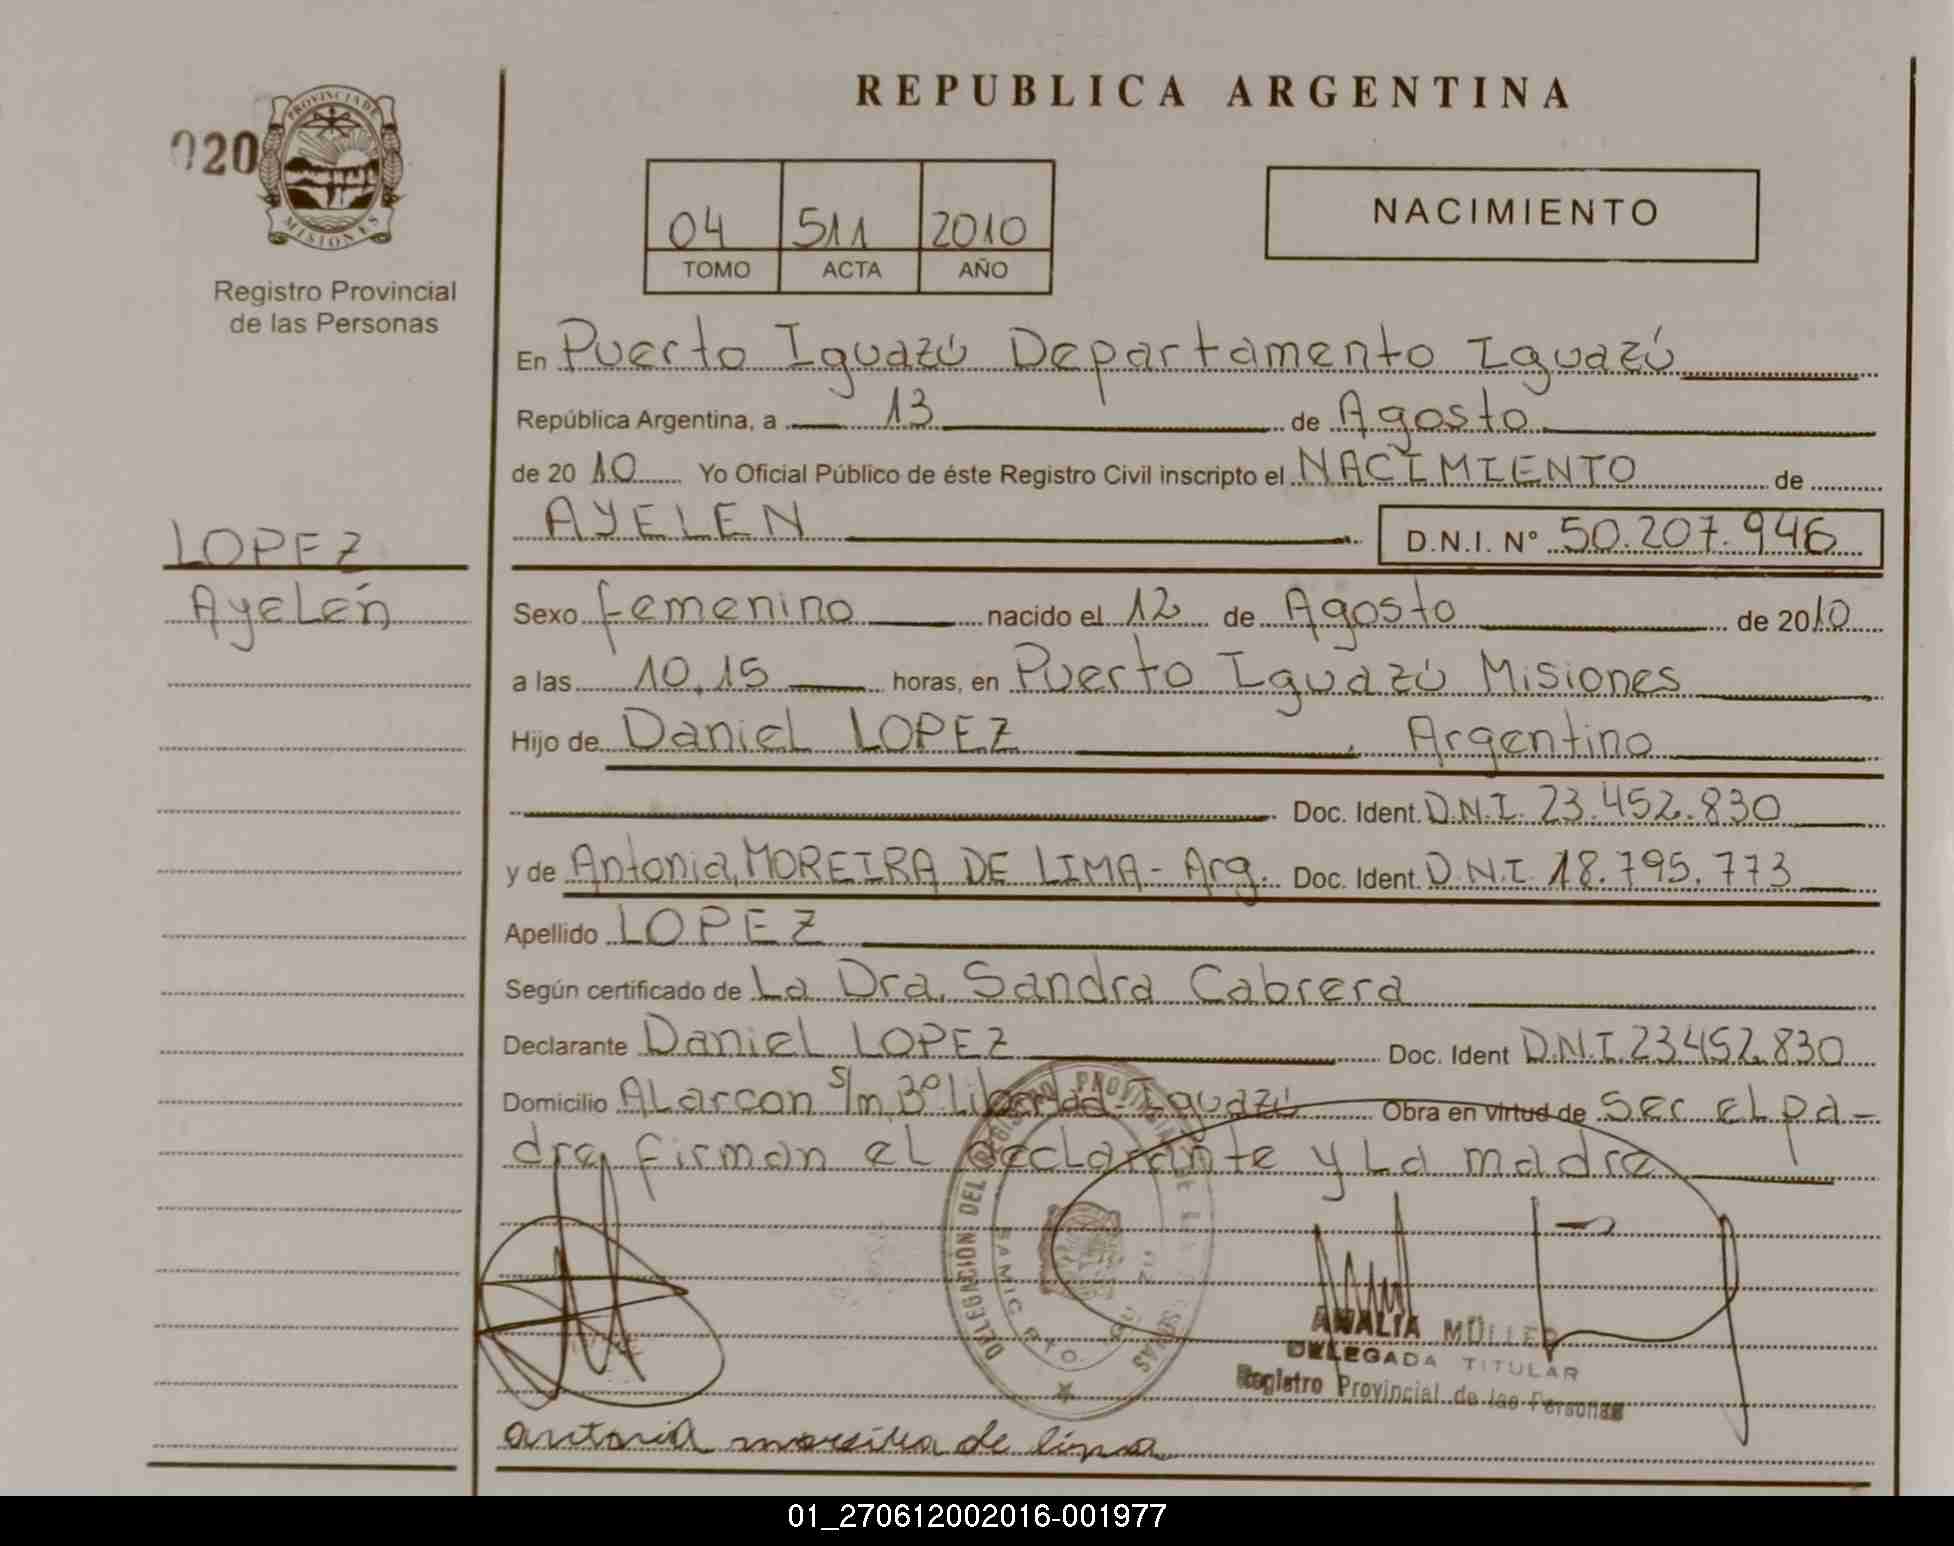 REPUBLICA ARGENTINA
020
PROVINCIA DE
MISIONES
Registro Provincial
de las Personas
04 511 2010
TOMO ACTA AÑO
NACIMIENTO
En Puerto Iguazú Departamento Iguazú
República Argentina, a 13 de Agosto
de 20 10 Yo Oficial Público de éste Registro Civil inscripto el NACIMIENTO de
AYELEN D.N.I. N° 50.207.946
LOPEZ
Ayelén
Sexo femenino nacido el 12 de Agosto de 2010
a las 10,15 horas, en Puerto Iguazú Misiones
Hijo de Daniel LOPEZ Argentino
Doc. Ident. D.N.I. 23.452.830
y de Antonia, MOREIRA DE LIMA - Arg. Doc. Ident. D.N.I. 18.795.773
Apellido LOPEZ
Según certificado de La Dra. Sandra Cabrera
Declarante Daniel LOPEZ Doc. Ident D.N.I. 23452.830
Domicilio ALarcon s/m B° Libertad - Iguazú Obra en virtud de ser el pa-
dre firman el declarante y La madre
DELEGACION DEL REGISTRO PROVINCIAL DE
ANALIA MÜLLER
DELEGADA TITULAR
Registro Provincial de las Personas
antonia moreira de lima
01_270612002016-001977